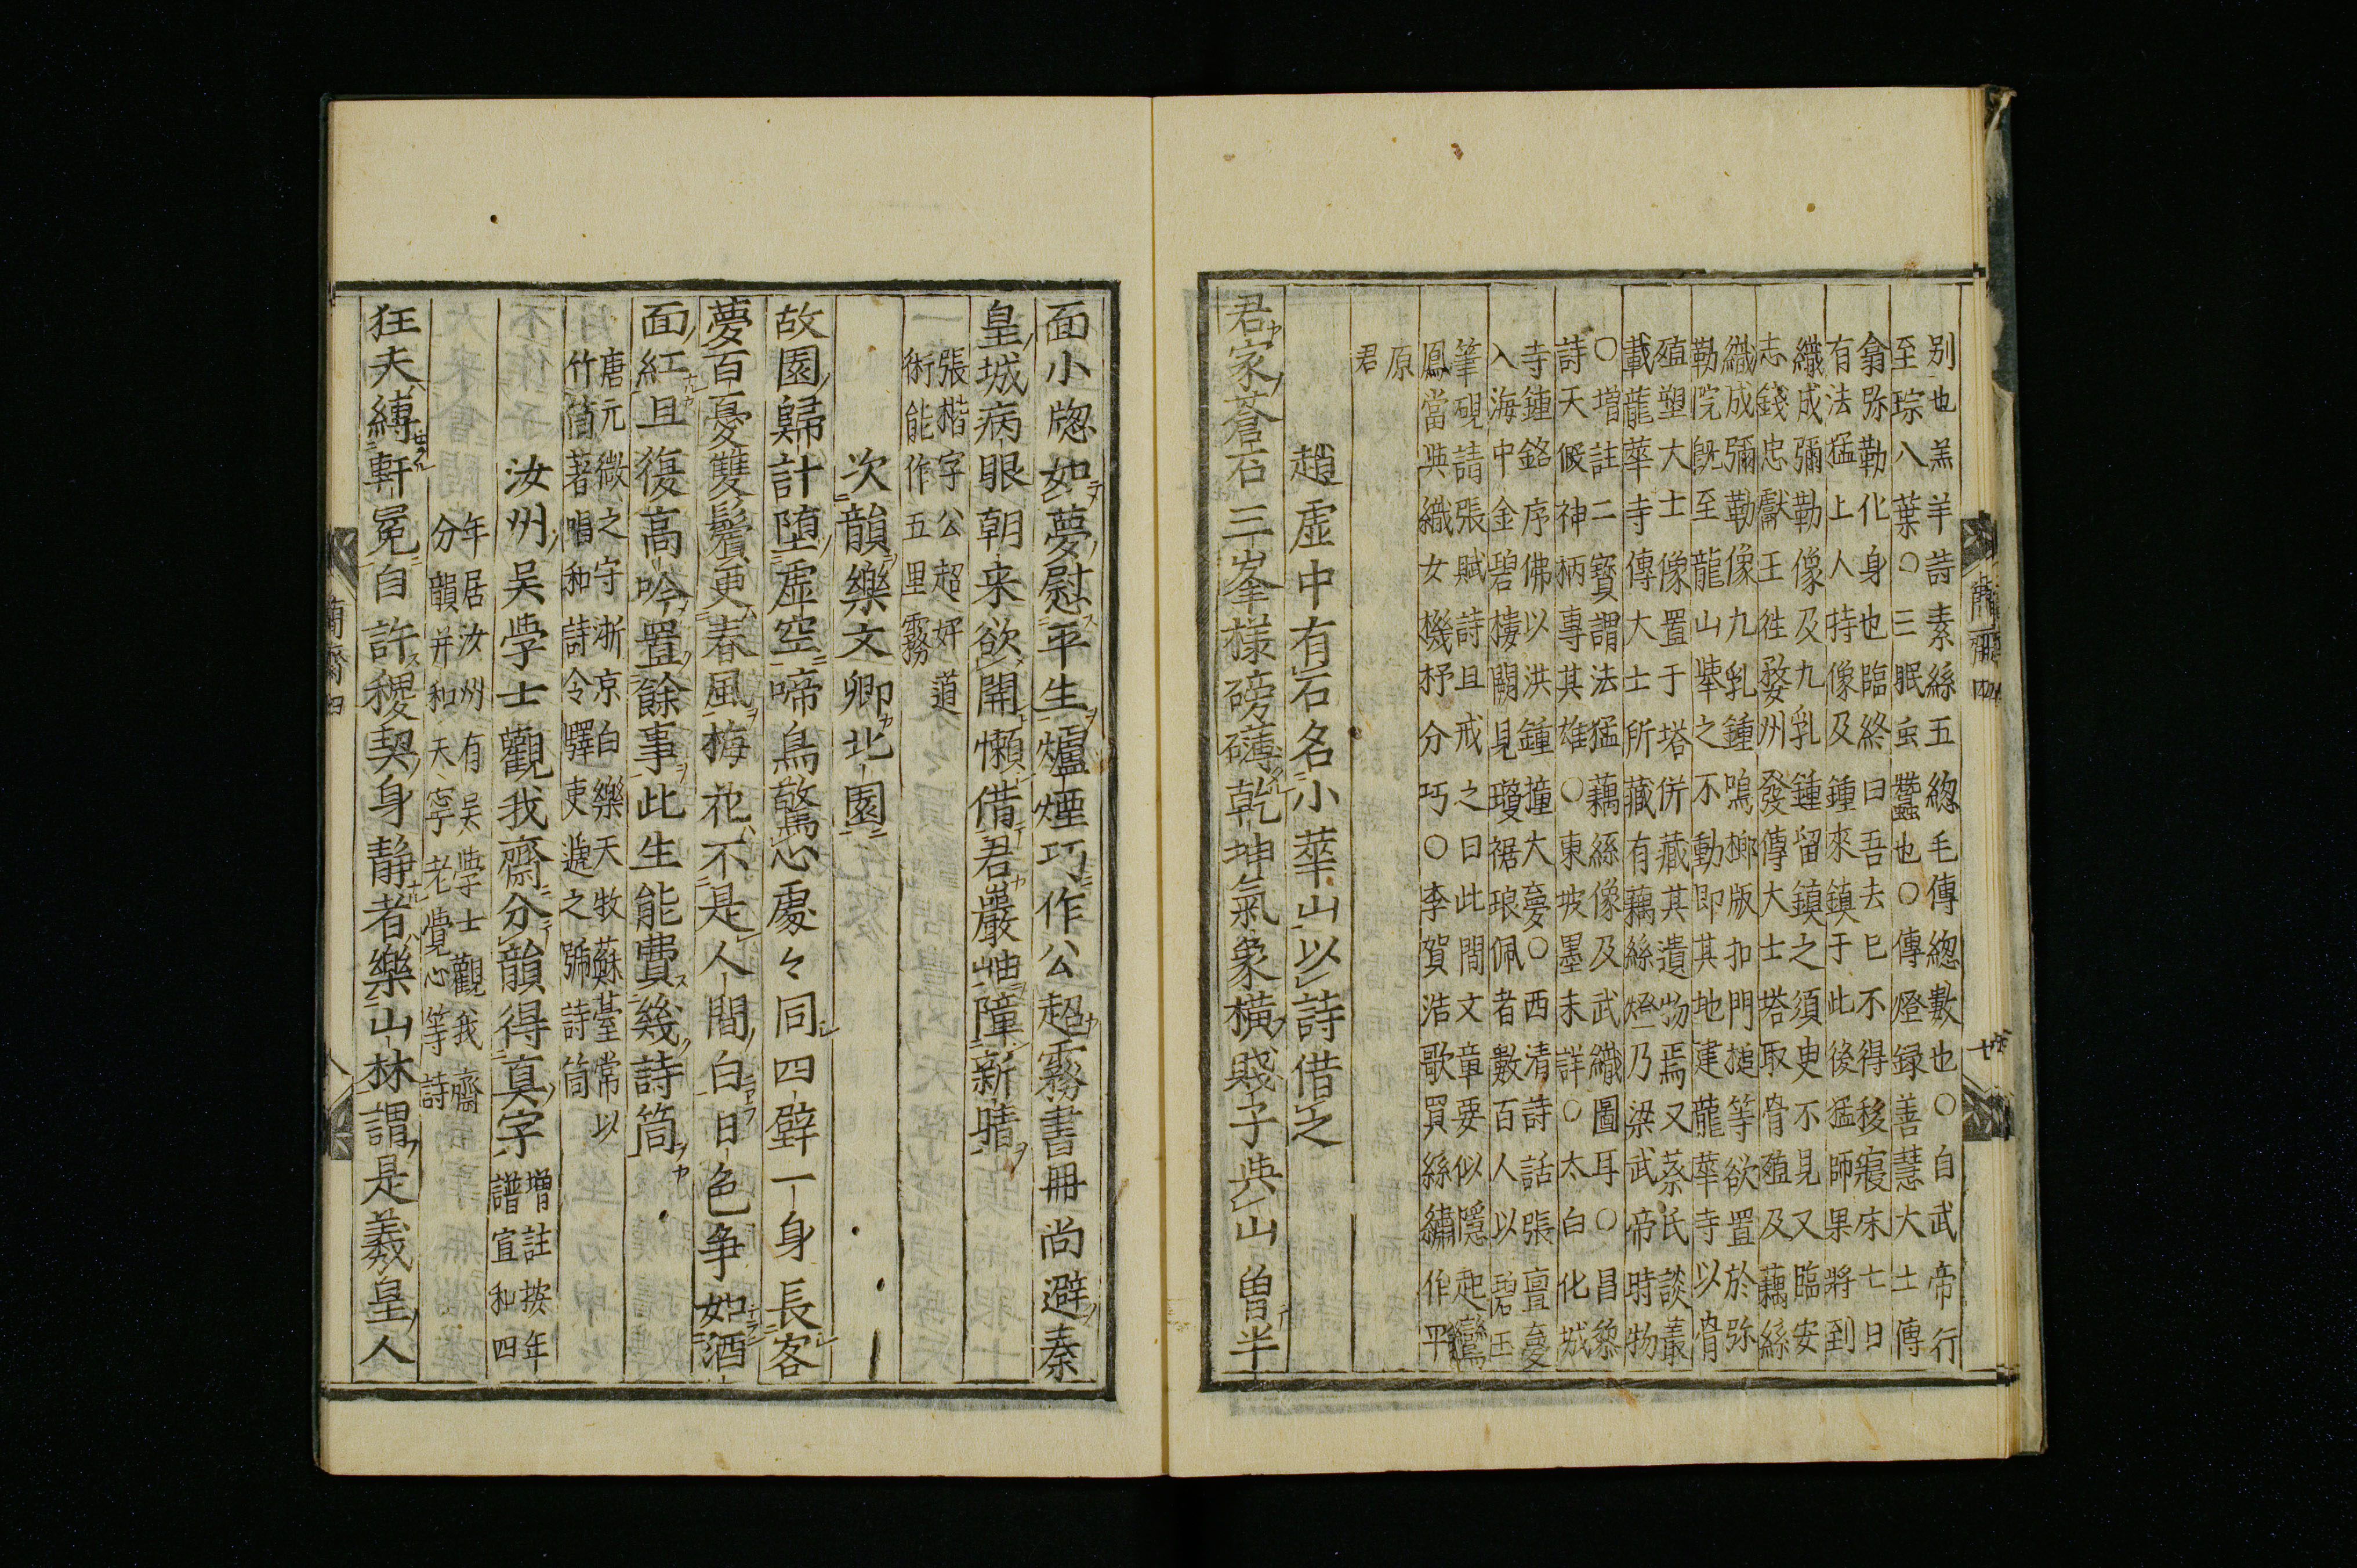 別也羔羊詩素絲五緫毛傳緫數也○自武帝行
至琮八葉○三眠虫蠶也○傳燈録善慧大士傳
翕弥勒化身也臨終曰吾去巳不得移寢床七日
有法猛上人持像及鍾來鎮于此後猛師果將到
織成彌勒像及九乳鍾留鎮之須史不見又臨安
志錢忠獻王徃婺州發傳大士塔取骨殖及藕絲
織成彌勒像九乳鍾鳴榔版扣門搥等欲置於弥
勒院旣至龍山轝之不動即其地建龍華寺以骨
殖塑大士像置于塔併蔵其遺物焉又蔡氏談叢
載龍華寺傳大士所藏有藕絲燈乃梁武帝時物
○増註二寳謂法猛藕絲像及武織圖耳○昌黎
詩天假神柄專其雄○東坡墨未詳○太白化城
寺鍾銘序佛以洪鍾撞大夢○西清詩話張亶夢
入海中金碧樓闕見瓊裾琅佩者數百人以碧玉
筆硯請張賦詩且戒之曰此間文章要似隱起鸞
鳳當與織女機杼分巧○李賀浩歌買絲繡作平
原
君
趙虚中有石名小華山以詩借之
君家蒼石三峯様磅礴乾坤氣象横賤子與山曽半
簡齋四
面小牕如夢慰平生爐煙巧作公超霧書冊尚避秦
皇城病眼朝来欲開懶借君巖岫障新晴
張楷字公超好道
術能作五里霧
次韻樂文卿北園
故園歸計堕虚空啼鳥驚心處々同四壁一身長客
夢百憂雙鬢更春風梅花不是人間白日色争如酒
面紅且復高吟置餘事此生能費幾詩筒
唐元微之守浙京白樂天牧蘇臺常以
竹筒著唱和詩令驛吏遞之號詩筒
汝州吴學士觀我齋分韻得真字
増註按年
譜宣和四
年居汝州有吴學士觀我齋
分韻并和天寧老覺心等詩
狂夫縛軒冕自許稷契身靜者樂山林謂是羲皇人
簡齋四